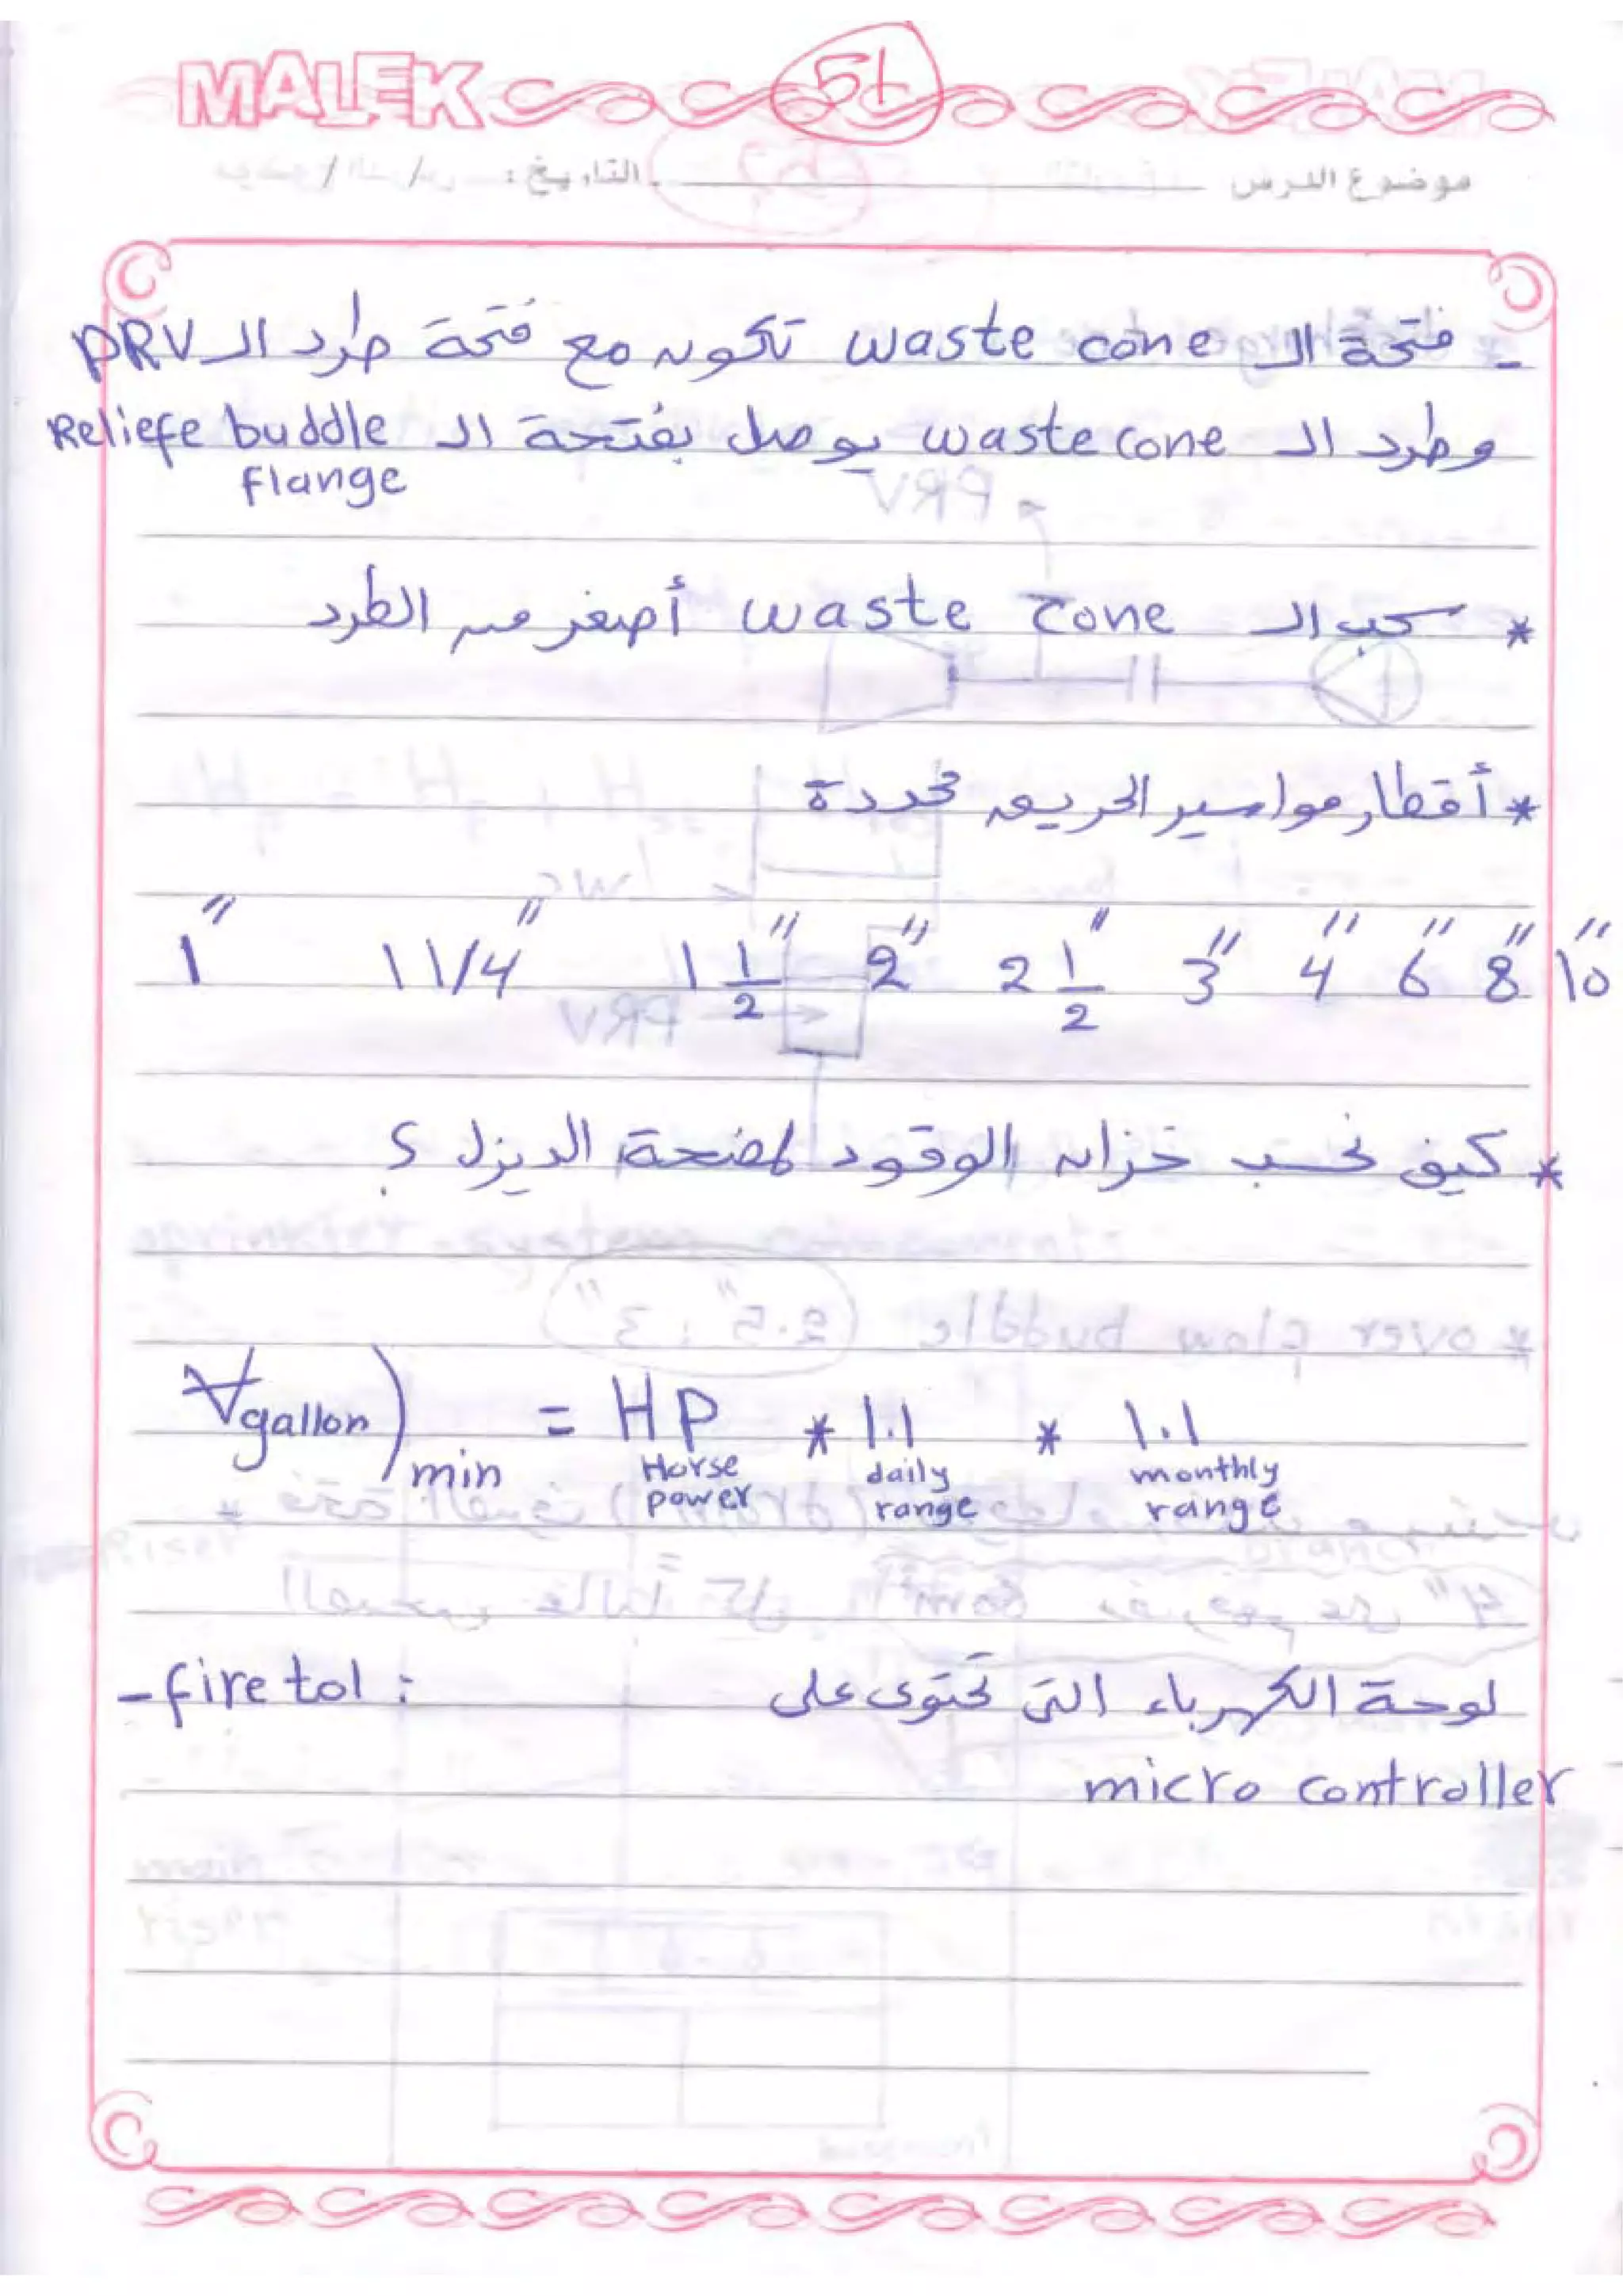 MALEK
51
موضوع الدرس التاريخ: / /
- فتحة الـ waste cone تكون مع فتحة طرد الـ PRV
وطرد الـ waste cone يوصل بفتحة الـ Reliefe buddle
flange
* سحب الـ waste cone أصغر من الطرد
* أقطار مواسير الحريق محددة
1" 1 1/4" 1 1/2" 2" 2 1/2" 3" 4" 6" 8" 10"
* كيف نحسب خزان الوقود لمضخة الديزل ؟
V gallon) min = HP * 1.1 * 1.1
Horse power daily range monthly range
- fire tol : لوحة الكهرباء التى تحتوى على
micro controller